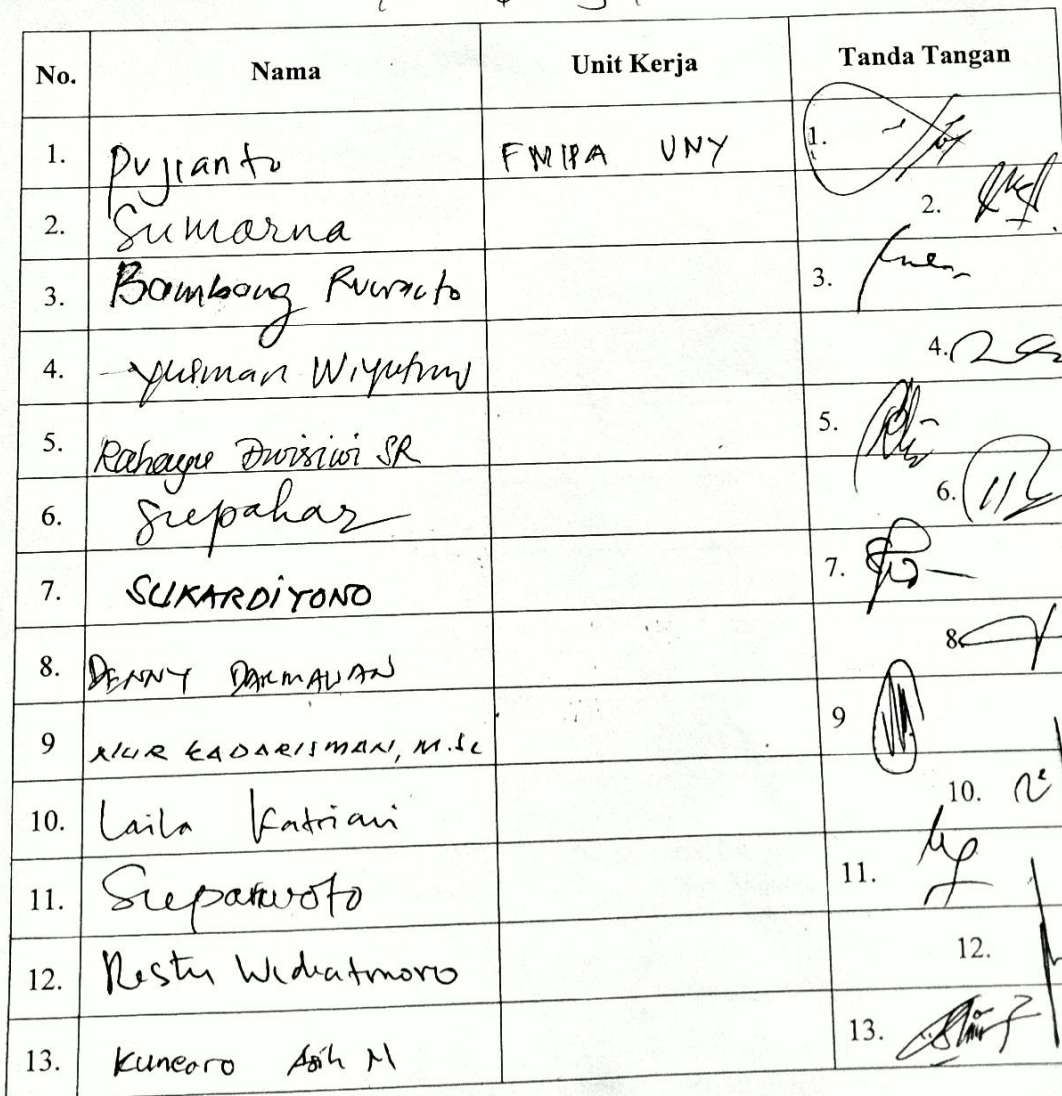 No. Nama Unit Kerja Tanda Tangan
1. Pujianto FMIPA UNY 1.
2. Sumarna 2.
3. Bambang Ruwanto 3.
4. Yusman Wiyatmo 4.
5. Rahayu Dwisiwi SR 5.
6. Supahar 6.
7. SUKARDIYONO 7.
8. DENNY DARMAWAN 8.
9 NUR KADARISMAN, M.Sc 9
10. Laila Katriani 10.
11. Suparwoto 11.
12. Restu Widiatmono 12.
13. Kuncoro Asih N 13.